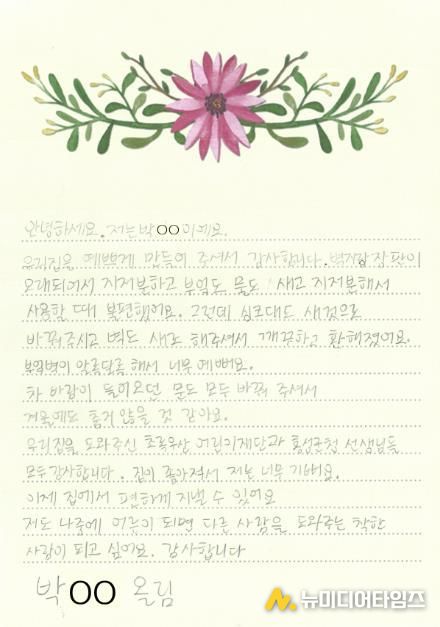 안녕하세요. 저는 박OO이에요.
우리집을 예쁘게 만들어 주셔서 감사합니다. 벽지랑 장판이
오래되어서 지저분하고 부엌도 물도 새고 지저분해서
사용할 때 불편했어요. 그런데 싱크대도 새것으로
바꿔주시고 벽도 새로 해주셔서 깨끗하고 환해졌어요.
부엌벽이 알록달록 해서 너무 예뻐요.
차 바람이 들어오던 문도 모두 바꿔 주셔서
겨울에도 춥지 않을 것 같아요.
우리집을 도와주신 초록우산 어린이재단과 홍성군청 선생님들
모두 감사합니다. 집이 좋아져서 저는 너무 기뻐요.
이제 집에서 편하게 지낼 수 있어요
저도 나중에 어른이 되면 다른 사람을 도와주는 착한
사람이 되고 싶어요. 감사합니다
박OO 올림
뉴미디어타임즈